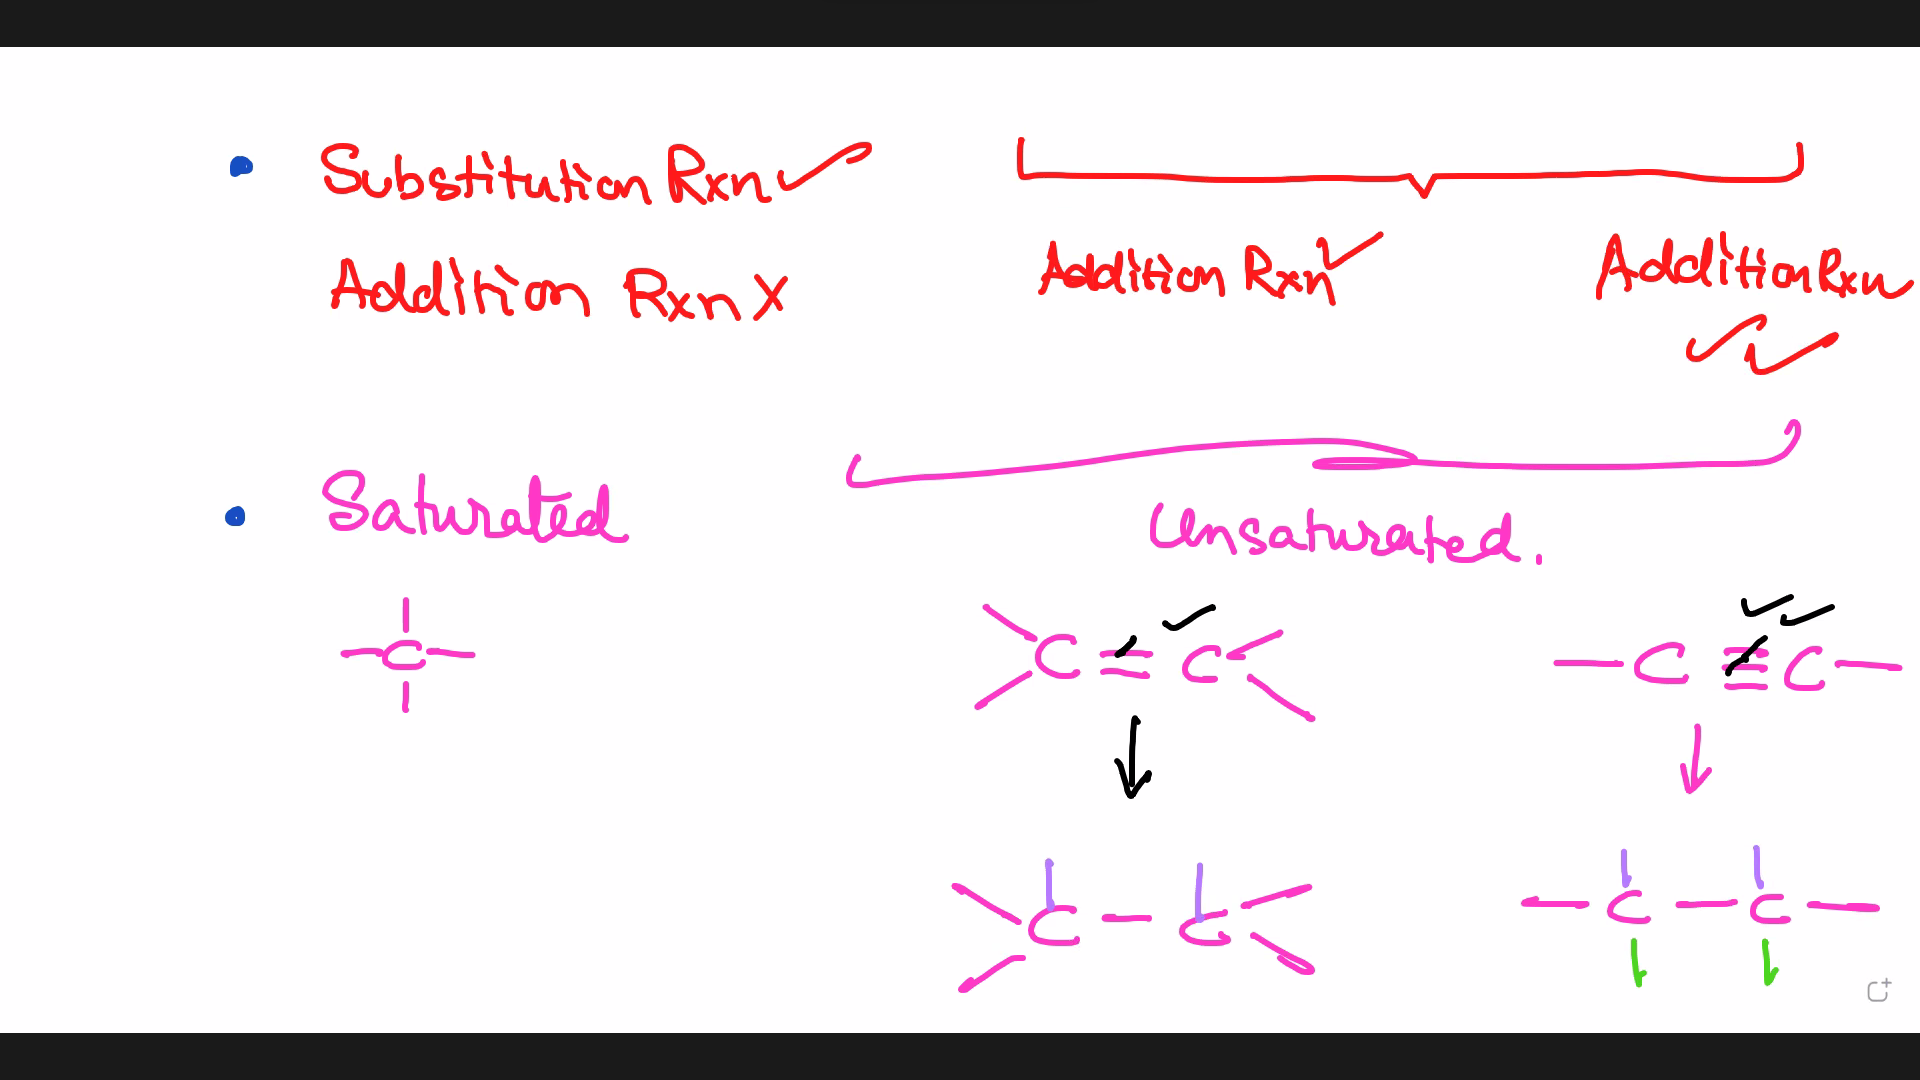 • Substitution Rxn ✓
Addition Rxn X
Addition Rxn ✓
Addition Rxn ✓✓
• Saturated
Unsaturated.
C
C = C
C ≡ C
C - C
C - C